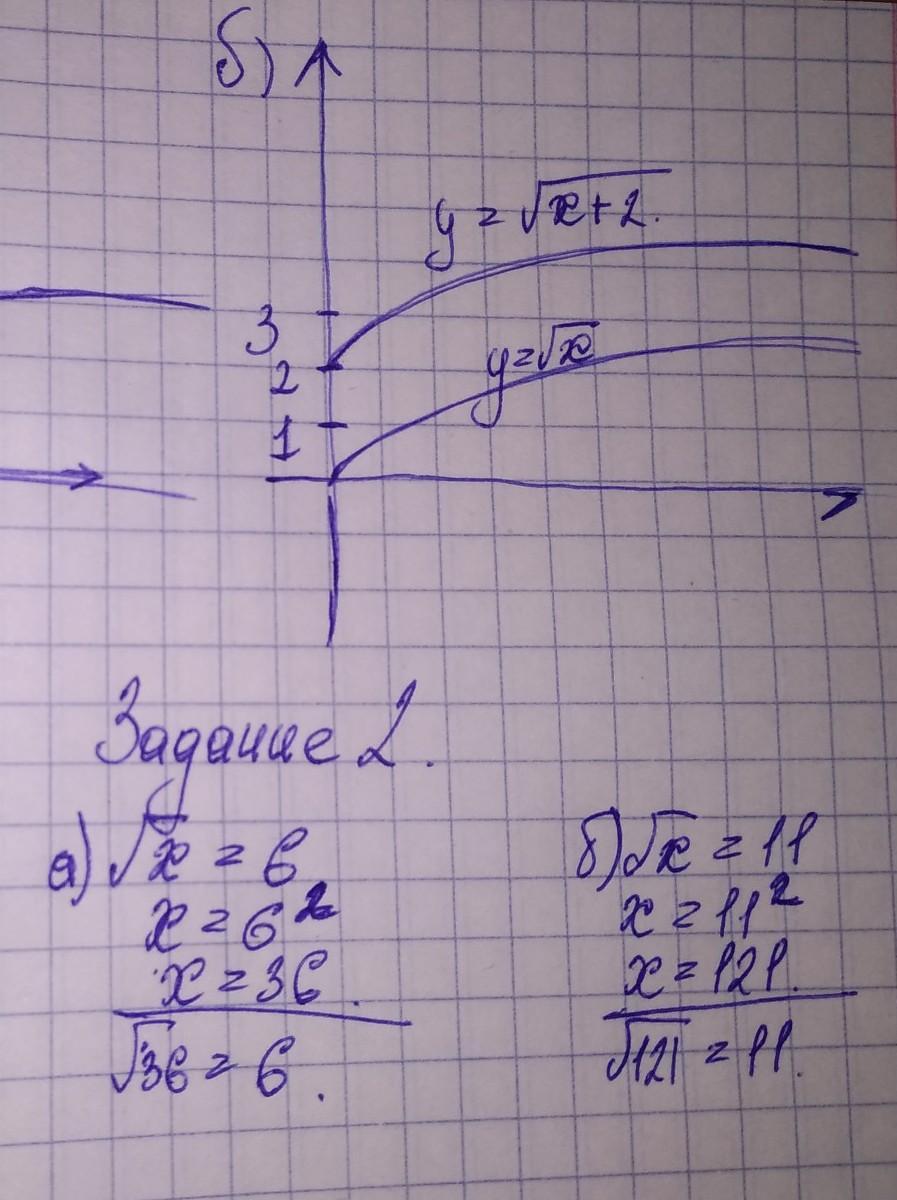 б)
y = √x+2.
3
y=√x
2
1
Задание 2.
а) √x = 6
x = 6²
x = 36.
√36 = 6.
б) √x = 11
x = 11²
x = 121.
√121 = 11.